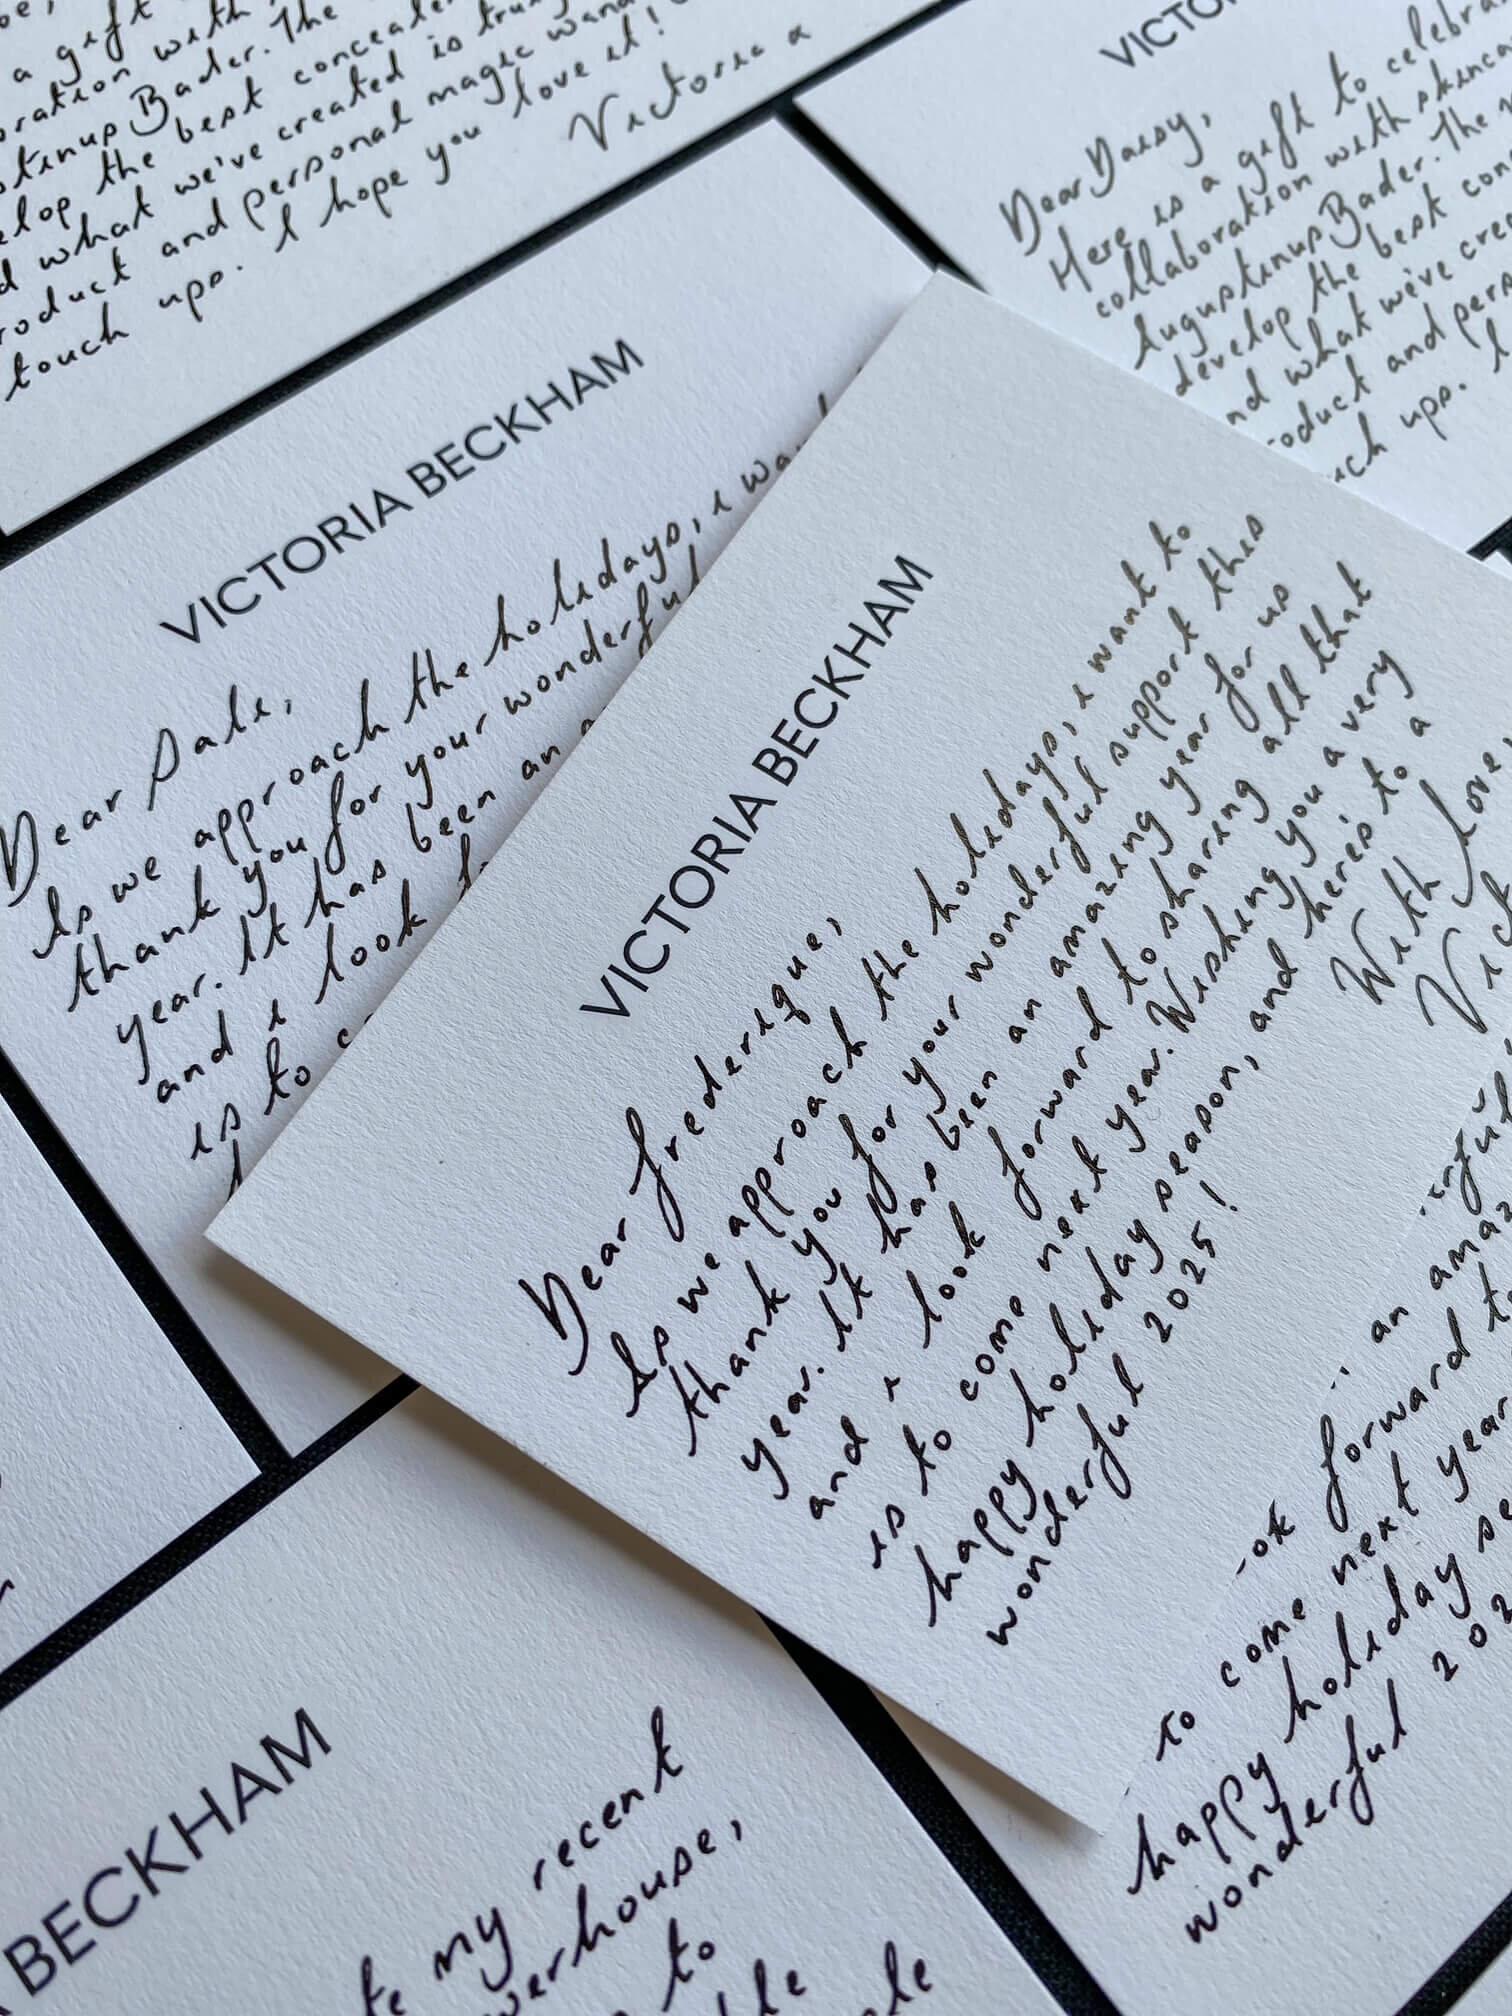 a gift
oration with
stinusBader. The
elop the best concealer
d what we've created is truly
roduct and personal magic wand
touch ups. I hope you love it!
Victoria x
VICTO
Dear Daisy,
Here is a gift to celebra
collaboration with skinca
AugustinusBader. The
develop the best con
nd what we've cre
oduct and pers
uch ups. I
VICTORIA BECKHAM
Dear Sali,
As we approach the holidays, i wan
thank you for your wonderful
year. It has been an a
and i look f
is to c
VICTORIA BECKHAM
Dear Frederique,
As we approach the holidays, i want to
thank you for your wonderful support this
year. It has been an amazing year for us
and i look forward to sharing all that
is to come next year. Wishing you a very
happy holiday season, and here's to a
wonderful 2025!
With love,
Vict
erful
an amaz
ok forward t
to come next year
happy holiday se
wonderful 202
BECKHAM
te my recent
werhouse,
to